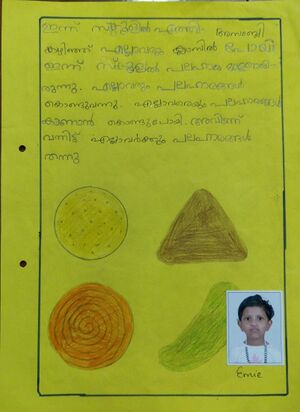 ഇന്ന് സ്കൂളിൽ എത്തി. അസംബ്ലി
കഴിഞ്ഞ് എല്ലാവരും ക്ലാസിൽ പോയി
ഇന്ന് സ്കൂളിൽ പലഹാര മേളയായി
രുന്നു. എല്ലാവരും പലഹാരങ്ങൾ
കൊണ്ടുവന്നു. എല്ലാവരെയും പലഹാരങ്ങൾ
കാണാൻ കൊണ്ടുപോയി. അവിടുന്ന്
വന്നിട്ട് എല്ലാവർക്കും പലഹാരങ്ങൾ
തന്നു
Emie